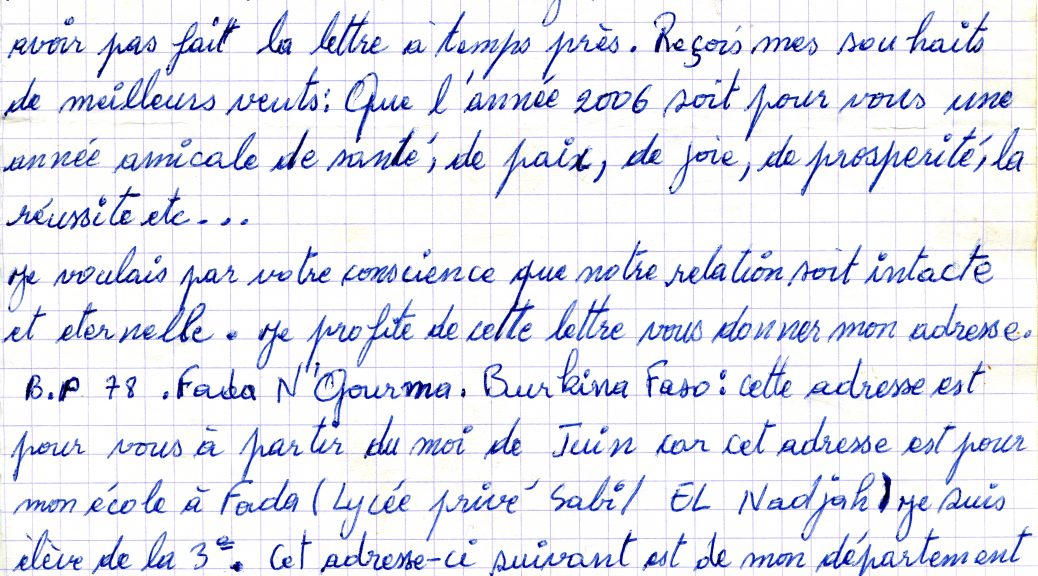 avoir pas fait la lettre à temps près. Reçois mes souhaits
de meilleurs veuts: Que l'année 2006 soit pour vous une
année amicale de santé, de paix, de joie, de prosperité, la
réussite etc...
je voulais par votre conscience que notre relation soit intacte
et eternelle. je profite de cette lettre vous donner mon adresse.
B.P 78 . Fada N''Gourma. Burkina Faso: cette adresse est
pour vous à partir du moi de Juin car cet adresse est pour
mon école à Fada (Lycée privé Sabil EL Nadjah) je suis
élève de la 3e. Cet adresse-ci suivant est de mon département